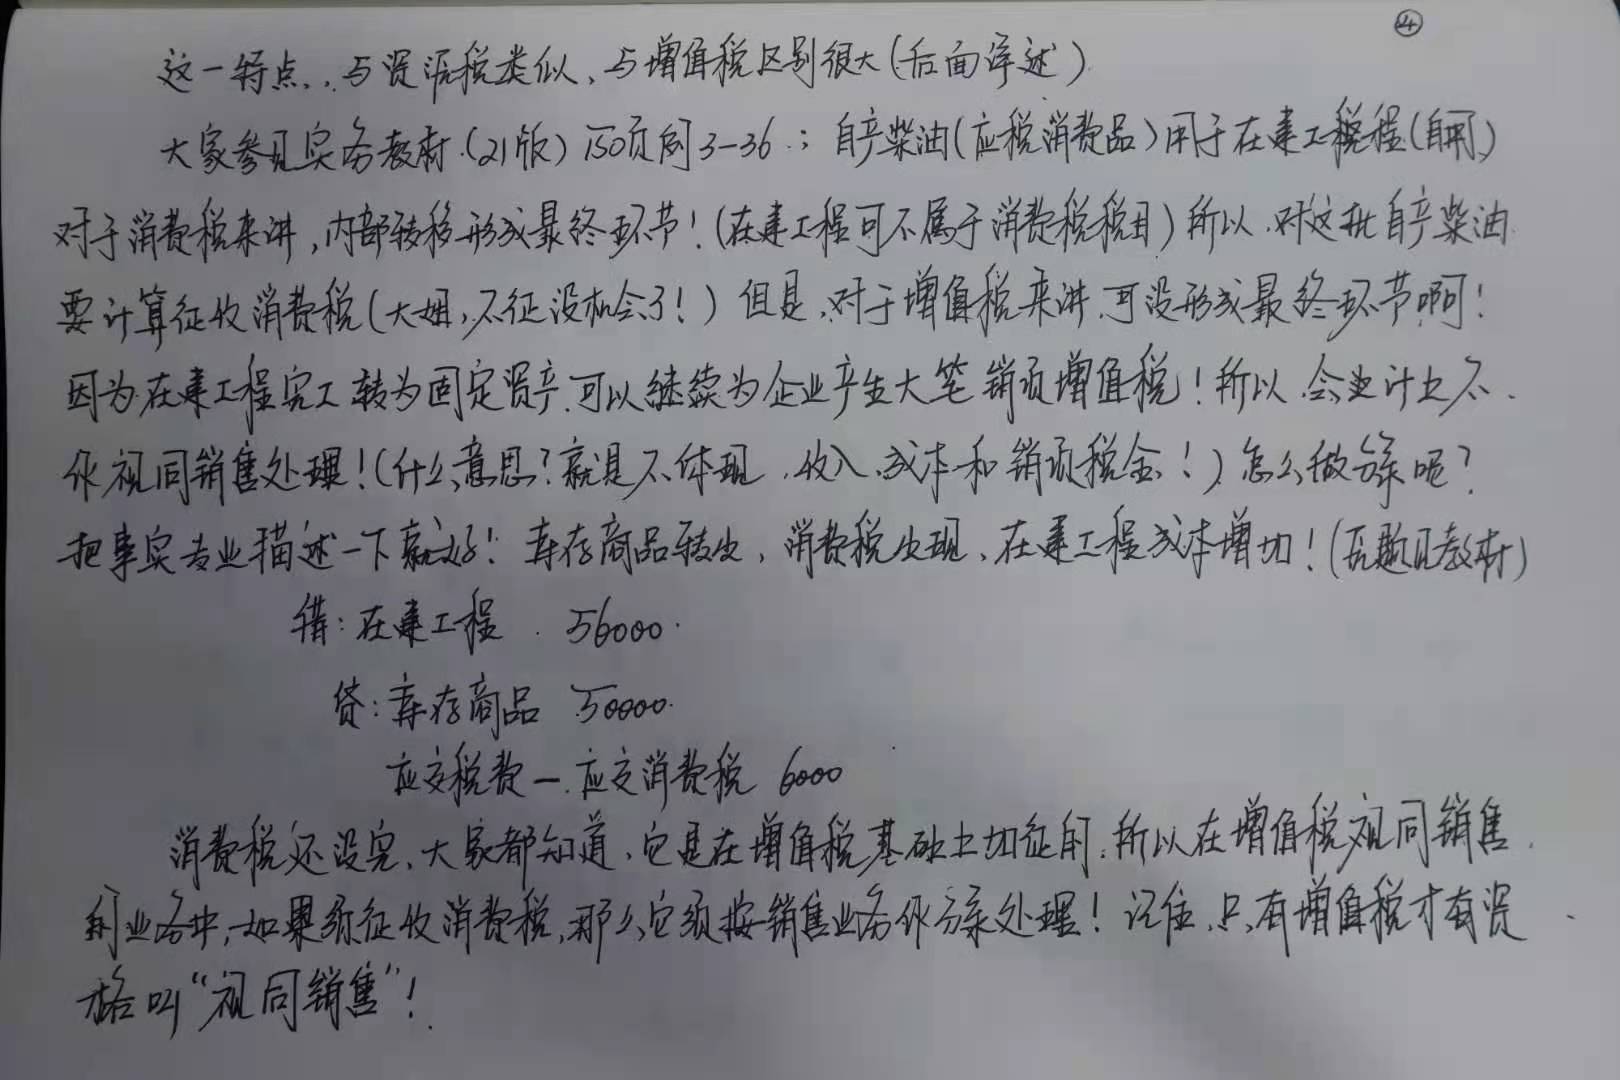 ④
这一特点，与资源税类似、与增值税区别很大（后面详述）
大家参见实务教材（21版）150页例3-36；自产柴油（应税消费品）用于在建工程（自用）
对于消费税来讲，内部转移形成最终环节！（在建工程可不属于消费税税目）所以，对这批自产柴油
要计算征收消费税（大姐，不征没机会了！）但是，对于增值税来讲，可没形成最终环节啊！
因为在建工程完工转为固定资产，可以继续为企业产生大笔销项增值税！所以，会计上不
作视同销售处理！（什么意思？就是不体现，收入、成本和销项税金！）怎么做分录呢？
把事实专业描述一下就好！库存商品转出，消费税出现，在建工程成本增加！（原题见教材）
借：在建工程 56000
贷：库存商品 50000
应交税费—应交消费税 6000
消费税还没完，大家都知道，它是在增值税基础上加征的，所以在增值税视同销售
的业务中，如果须征收消费税，那么它须按销售业务作分录处理！记住，只有增值税才有资
格叫“视同销售”！